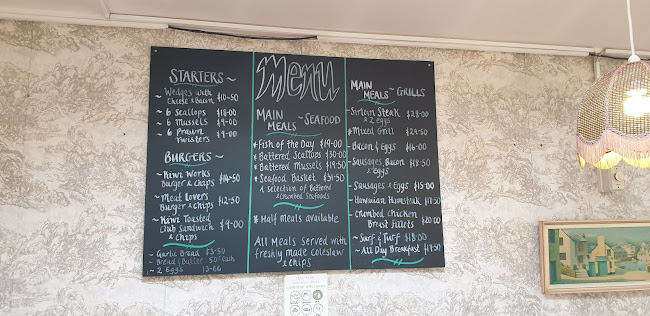 STARTERS ~
~ Wedges with
Cheese & Bacon $10-50
~ 6 Scallops $18-00
~ 6 Mussels $9-00
~ 6 Prawn $9-00
Twisters
BURGERS ~
~ Kiwi Works
Burger & Chips $14-50
~ Meat Lovers
Burger & Chips $12-50
~ Kiwi Toasted
Club Sandwich $9-00
& Chips
~ Garlic Bread $3-50
~ Bread & Butter 50c each
~ 2 Eggs
Menu
MAIN
MEALS ~ SEAFOOD
* Fish of the Day $19-00
* Battered Scallops $30-00
* Battered Mussels $19-50
* Seafood Basket $31-50
A Selection of Battered
& Crumbed Seafoods
* Half Meals available
All Meals served with
freshly made Coleslaw
& Chips
MAIN
MEALS ~ GRILLS
~ Sirloin Steak $28-00
& 2 Eggs
* Mixed Grill $24-50
~ Bacon & Eggs $16-00
~ Sausages, Bacon $18-50
& Eggs
~ Sausages & Eggs $15-00
~ Hawaiian Hamsteak
~ Crumbed Chicken
Breast Fillets $20-00
~ Surf & Turf $18-00
~ All Day Breakfast